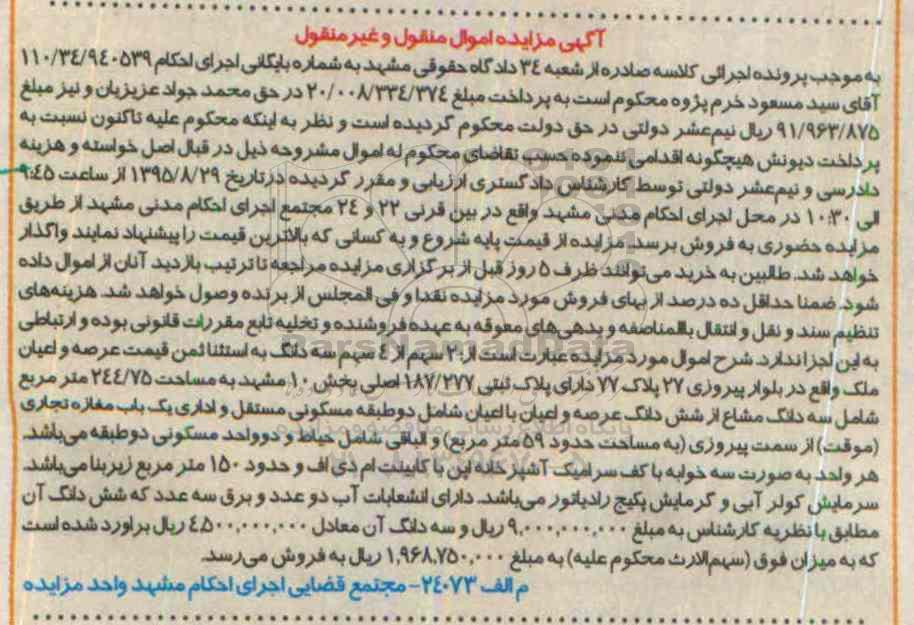 آگهی مزایده اموال منقول و غیر منقول
به موجب پرونده اجرائی کلاسه صادره از شعبه ۳۴ دادگاه حقوقی مشهد به شماره بایگانی اجرای احکام ۱۱۰/۳۴/۹۴۰۵۳۹
آقای سید مسعود خرم پژوه محکوم است به پرداخت مبلغ ۲۰/۰۰۸/۳۳۴/۳۷۴ در حق محمد جواد عزیزیان و نیز مبلغ
۹۱/۹۶۳/۸۷۵ ریال نیم‌عشر دولتی در حق دولت محکوم گردیده است و نظر به اینکه محکوم علیه تاکنون نسبت به
پرداخت دیونش هیچگونه اقدامی ننموده حسب تقاضای محکوم له اموال مشروحه ذیل در قبال اصل خواسته و هزینه
دادرسی و نیم‌عشر دولتی توسط کارشناس دادگستری ارزیابی و مقرر گردیده در تاریخ ۱۳۹۵/۸/۲۹ از ساعت ۹:۴۵
الی ۱۰:۳۰ در محل اجرای احکام مدنی مشهد واقع در بین قرنی ۲۲ و ۲۴ مجتمع اجرای احکام مدنی مشهد از طریق
مزایده حضوری به فروش برسد. مزایده از قیمت پایه شروع و به کسانی که بالاترین قیمت را پیشنهاد نمایند واگذار
خواهد شد. طالبین به خرید می‌توانند ظرف ۵ روز قبل از برگزاری مزایده مراجعه تا ترتیب بازدید آنان از اموال داده
شود. ضمنا حداقل ده درصد از بهای فروش مورد مزایده نقدا و فی المجلس از برنده وصول خواهد شد. هزینه‌های
تنظیم سند و نقل و انتقال بالمناصفه و بدهی‌های معوقه به عهده فروشنده و تخلیه تابع مقررات قانونی بوده و ارتباطی
به این اجرا ندارد. شرح اموال مورد مزایده عبارت است از: ۲ سهم از ۴ سهم سه دانگ به استثنا ثمن قیمت عرصه و اعیان
ملک واقع در بلوار پیروزی ۲۷ پلاک ۷۷ دارای پلاک ثبتی ۱۸۷/۲۷۷ اصلی بخش ۱۰ مشهد به مساحت ۲۴۴/۷۵ متر مربع
شامل سه دانگ مشاع از شش دانگ عرصه و اعیان با اعیان شامل دو طبقه مسکونی مستقل و اداری یک باب مغازه تجاری
(موقت) از سمت پیروزی (به مساحت حدود ۵۹ متر مربع) و الباقی شامل حیاط و دو واحد مسکونی دو طبقه می‌باشد.
هر واحد به صورت سه خوابه با کف سرامیک آشپزخانه اپن با کابینت ام دی اف و حدود ۱۵۰ متر مربع زیربنا می‌باشد.
سرمایش کولر آبی و گرمایش پکیج رادیاتور می‌باشد. دارای انشعابات آب دو عدد و برق سه عدد که شش دانگ آن
مطابق با نظریه کارشناس به مبلغ ۹,۰۰۰,۰۰۰,۰۰۰ ریال و سه دانگ آن معادل ۴,۵۰۰,۰۰۰,۰۰۰ ریال براورد شده است
که به میزان فوق (سهم‌الارث محکوم علیه) به مبلغ ۱,۹۶۸,۷۵۰,۰۰۰ ریال به فروش می‌رسد.
م الف ۲۴۰۷۳- مجتمع قضایی اجرای احکام مشهد واحد مزایده
ParsNamadData